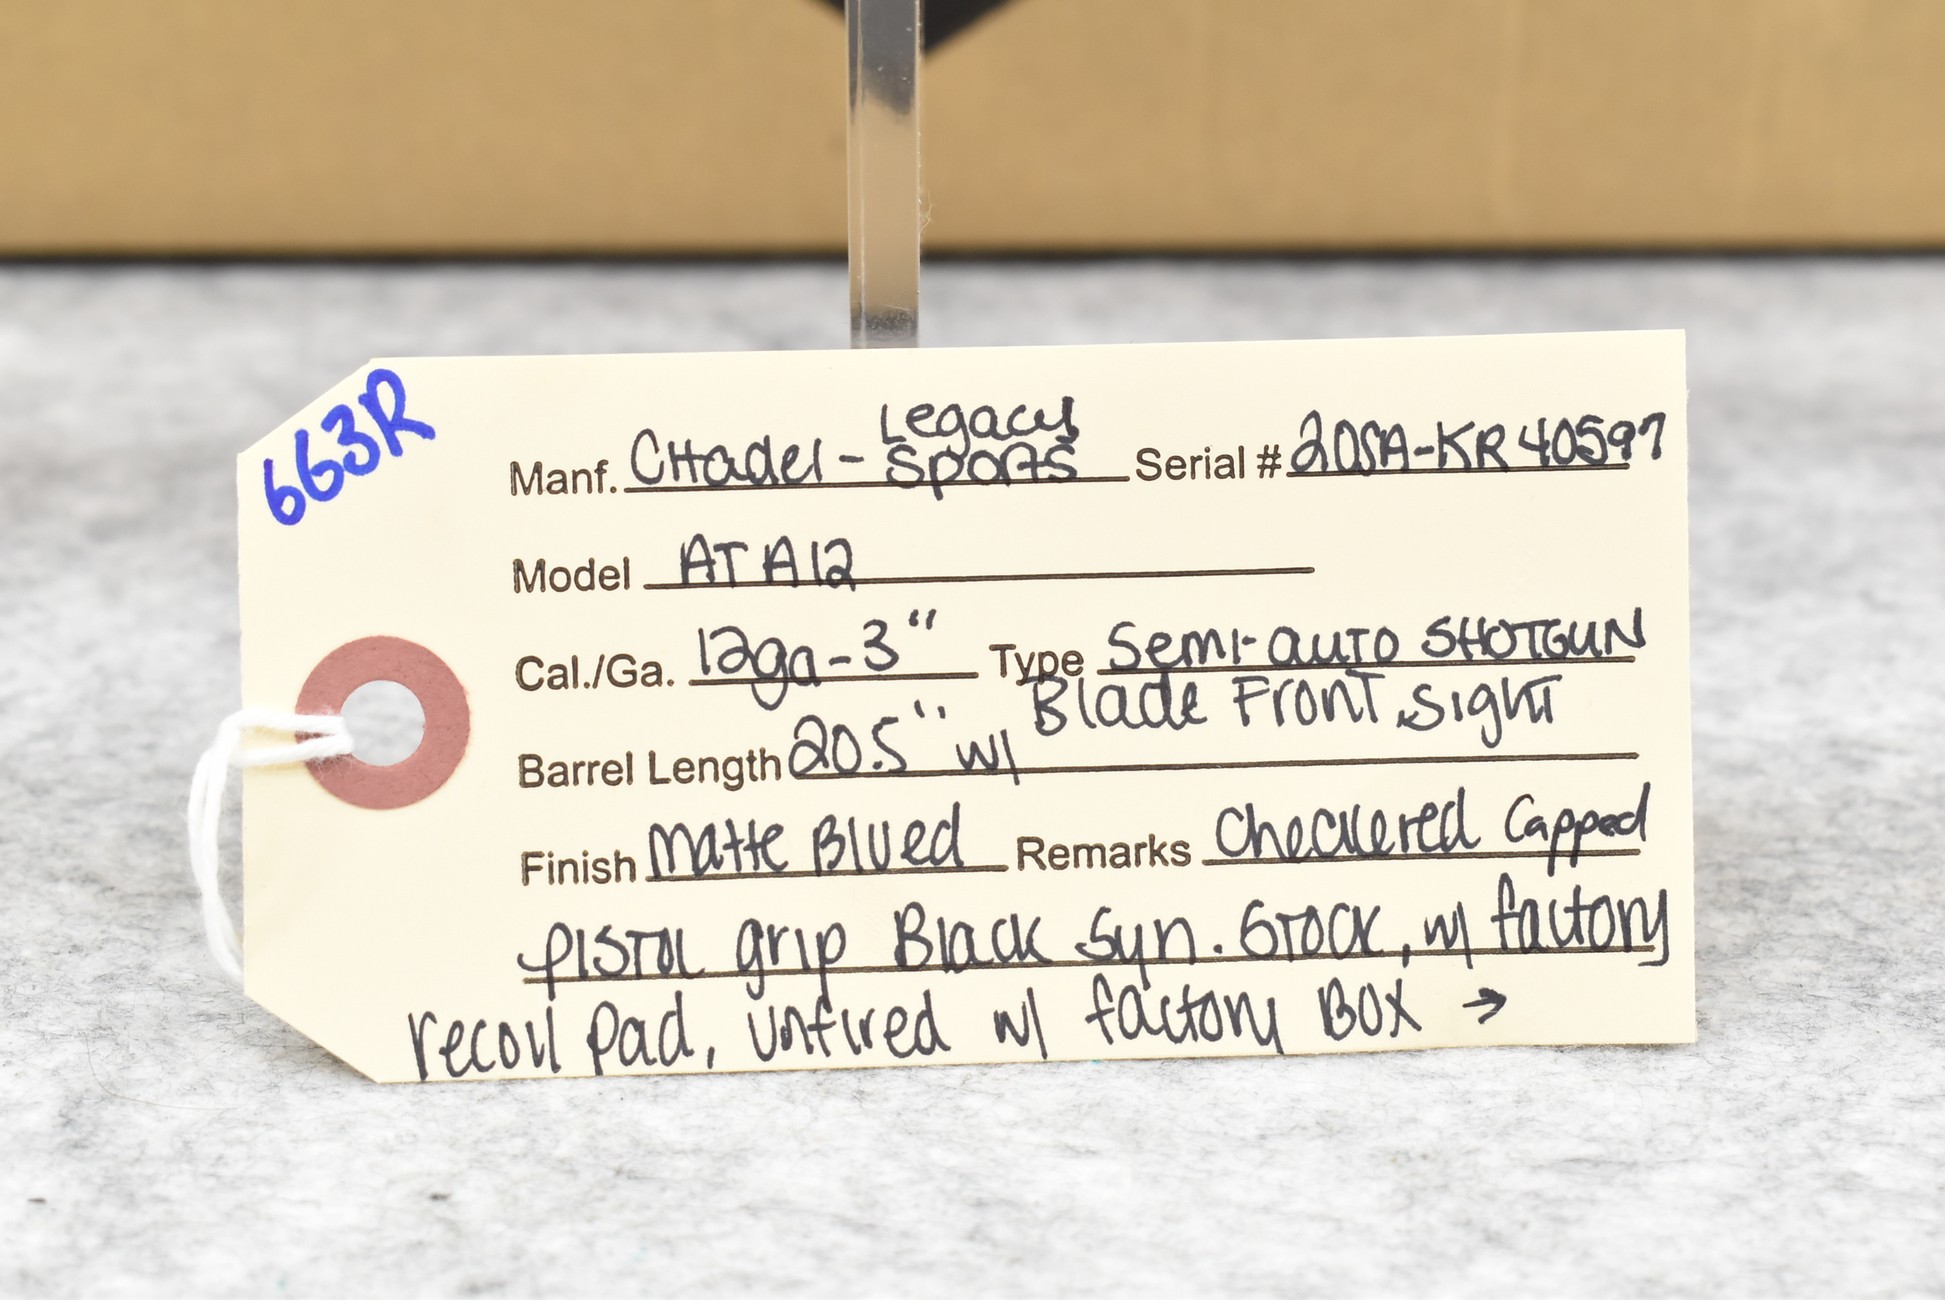 663R
Manf. Citadel - Legacy Sports Serial # 20SA-KR40597
Model ATA12
Cal./Ga. 12ga-3" Type Semi-auto SHOTGUN
Barrel Length 20.5" w/ Blade Front Sight
Finish Matte Blued Remarks Checkered Capped
PISTOL grip Black Syn. Stock, w/ factory
recoil pad, unfired w/ factory Box →